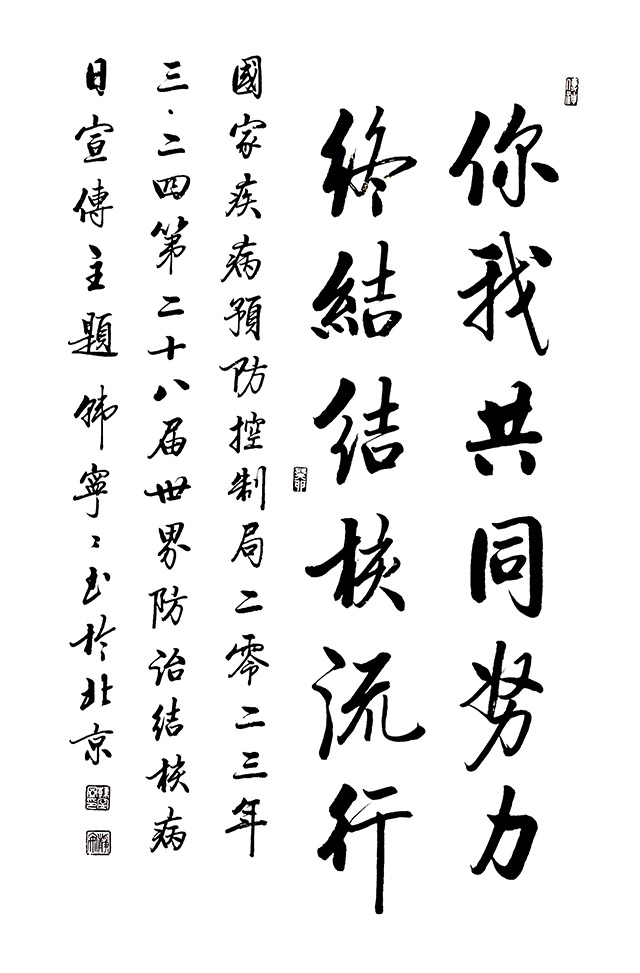 你我共同努力
終結结核流行
國家疾病預防控制局二零二三年
三·二四第二十八届世界防治结核病
日宣傳主題 韩寧〻书於北京
癸卯